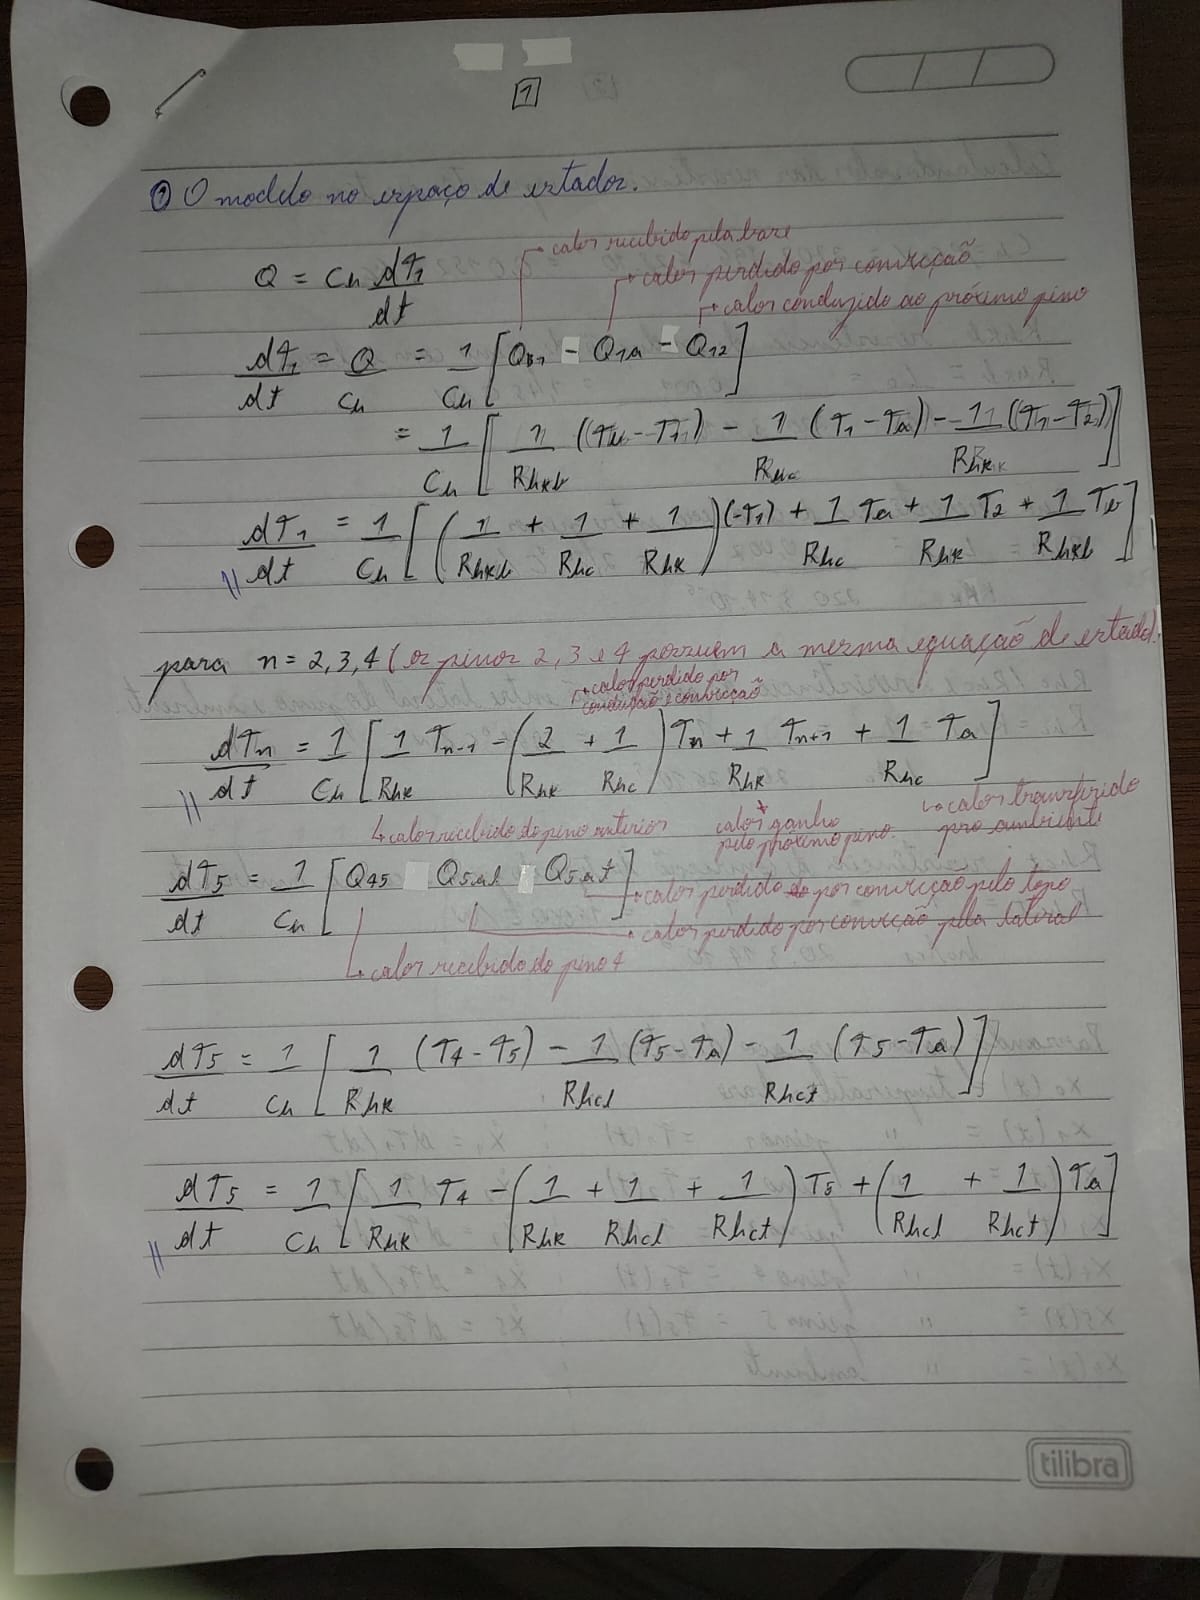 1
① O modelo no espaço de estados.
Q = Ch dT1/dt
calor recebido pela base
calor perdido por convicção
calor conduzido ao próximo pino
dT1/dt = Q/Ch = 1/Ch [QB1 - Q1a - Q12]
= 1/Ch [1/Rhkb (Tb - T1) - 1/Rhc (T1 - Ta) - 1/Rhk (T1 - T2)]
dT1/dt = 1/Ch [(1/Rhkb + 1/Rhc + 1/Rhk)(-T1) + 1/Rhc Ta + 1/Rhk T2 + 1/Rhkb Tb]
para n = 2, 3, 4 (os pinos 2, 3 e 4 possuem a mesma equação de estado).
calor perdido por
condução e convicção
dTn/dt = 1/Ch [1/Rhk Tn-1 - (2/Rhk + 1/Rhc) Tn + 1/Rhk Tn+1 + 1/Rhc Ta]
calor recebido do pino anterior
calor ganho
pelo próximo pino.
calor transferido
pro ambiente
dT5/dt = 1/Ch [Q45 Q5al Q5at]
calor perdido por convicção pelo topo
calor perdido por convicção pela lateral
calor recebido do pino 4
dT5/dt = 1/Ch [1/Rhk (T4 - T5) - 1/Rhcl (T5 - Ta) - 1/Rhct (T5 - Ta)]
dT5/dt = 1/Ch [1/Rhk T4 - (1/Rhk + 1/Rhcl + 1/Rhct) T5 + (1/Rhcl + 1/Rhct) Ta]
tilibra